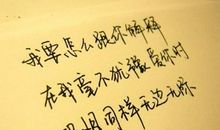 我要怎么跟你解释
在我毫不犹豫爱你时
同样无边无际